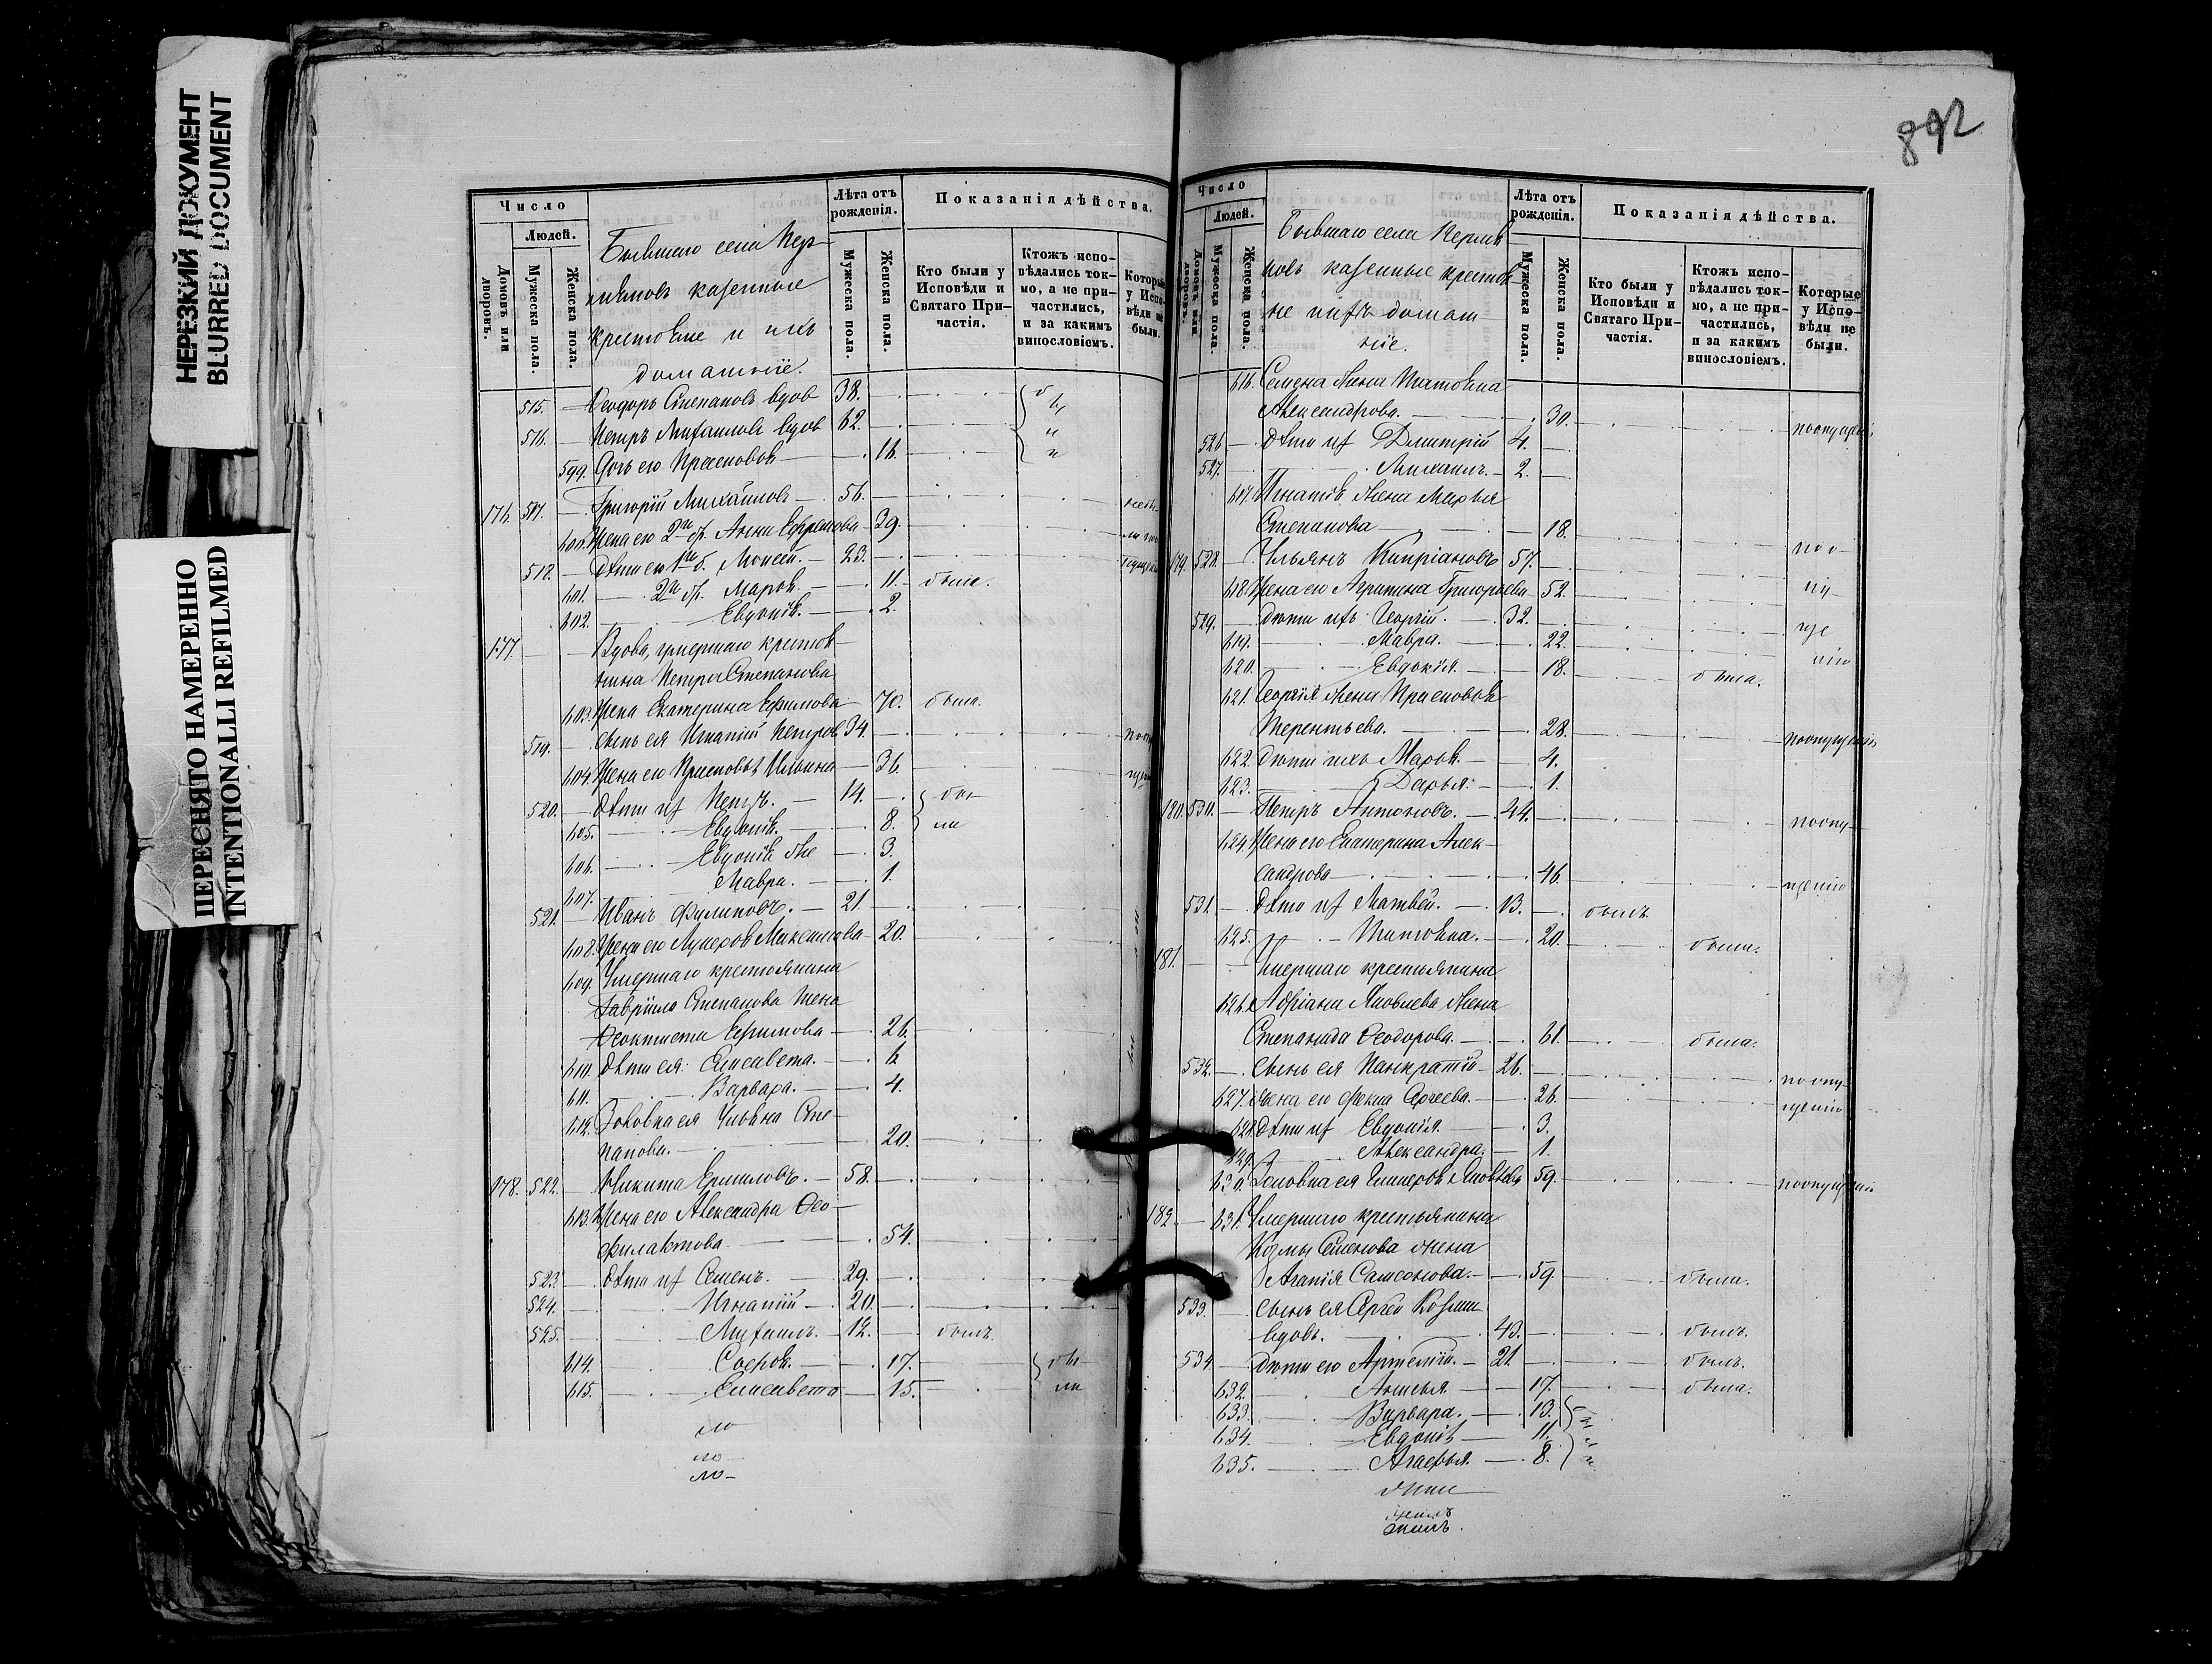 НЕРЕЗКИЙ ДОКУМЕНТ
BLURRED DOCUMENT
ПЕРЕСНЯТО НАМЕРЕННО
INTENTIONALLI REFILMED
892
Число
Людей.
Домовъ или дворовъ.
Мужеска пола.
Женска пола.
Бывшаго села Пер-
казенные
крестьяне и ихъ
домашніе.
Лѣта отъ рожденія.
Мужеска пола.
Женска пола.
Показанія дѣйства.
Кто были у Исповѣди и Святаго Причастія.
Ктожъ исповѣдались токмо, а не причастились, и за какимъ винословіемъ.
Которые у Исповѣди не были.
515. Ѳеодоръ Степановъ вдов 38.
516. Петръ Михаиловъ вдов 62.
599. Дочь его 16.
176. 517. Григорій Михаиловъ 56.
600. Жена его 2го бр. Анна Ефремова 39.
518. Дѣти его 1го б. Моисей. 23.
601. 2го бр. Марѳа. 11. были.
602. Евдокія. 2.
177. Вдова, умершаго крестья-
нина Петра Степанова
603. Жена Екатерина Ефимова 70. была.
519. Сынъ ея Игнатій Петров 34.
604. Жена его Прасковья Ильина 36.
520. Дѣти их Петръ. 14. бы
605. Евдокія. 8. ли
606. Евдокія же 3.
607. Мавра. 1.
521. Иванъ Филиповъ. 21
608. Жена его Лукерья Максимова 20.
609. Умершаго крестьянина
Гаврiила Степанова жена
Ѳеоктиста Ефимова 26.
610. Дѣти ея: Елисавета. 6.
611. Варвара. 4.
612. Золовка ея Ульяна Сте-
панова. 20.
178. 522. Никита Ермиловъ. 58.
613. Жена его Александра Ѳео-
филактова 54.
523. Дѣти их Семенъ. 29.
524. Игнатій 20.
525. Михаилъ. 12. былъ.
614. Софья. 17. бы
615. Елисавета 15. ли
Число
Людей.
Домовъ или дворовъ.
Мужеска пола.
Женска пола.
Бывшаго села
казенные крестья
не и ихъ домаш
ніе.
Лѣта отъ рожденія.
Мужеска пола.
Женска пола.
Показанія дѣйства.
Кто были у Исповѣди и Святаго Причастія.
Ктожъ исповѣдались токмо, а не причастились, и за какимъ винословіемъ.
Которые у Исповѣди не были.
616. Семена жена
Александрова. 30.
526. Дѣти их Димитрій 4.
527. Михаилъ. 2.
617. Игнатія жена Марья
Степанова 18.
179. 528. Ульянъ Кипріановъ 57.
618. Жена его Агрипина Григорьева 52.
529. Дѣти ихъ Георгій. 32.
619. Мавра. 22.
620. Евдокія. 18. была.
621. Георгія жена Прасковья
Терентьева. 28.
622. Дѣти ихъ Марья. 4.
623. Дарья. 1.
180. 530. Петръ Антоновъ. 44.
624. Жена его Екатерина Алек-
сандрова 46.
531. Дѣти их Матвѣй. 13. былъ
625. 20. была.
181. Умершаго крестьянина
626. Адріана Яковлева жена
Степанида Ѳеодорова. 61. была.
532. Сынъ ея Панкратій 26.
627. Жена его Ѳекла Сергеева. 26.
628. Дѣти их Евдокія. 3.
629. Александра. 1.
630. Золовка ея Гликерья Яковлева 59.
182. 631. Умершаго крестьянина
Козмы Семенова жена
Агапія Самсонова. 59. была.
533. Сынъ ея Сергей Козмин
вдовъ. 43. былъ.
534. Дѣти его Артемій. 21. былъ.
632. 17. была.
633. Варвара. 13.
634. Евдокія 11.
635. Агафья. 8.